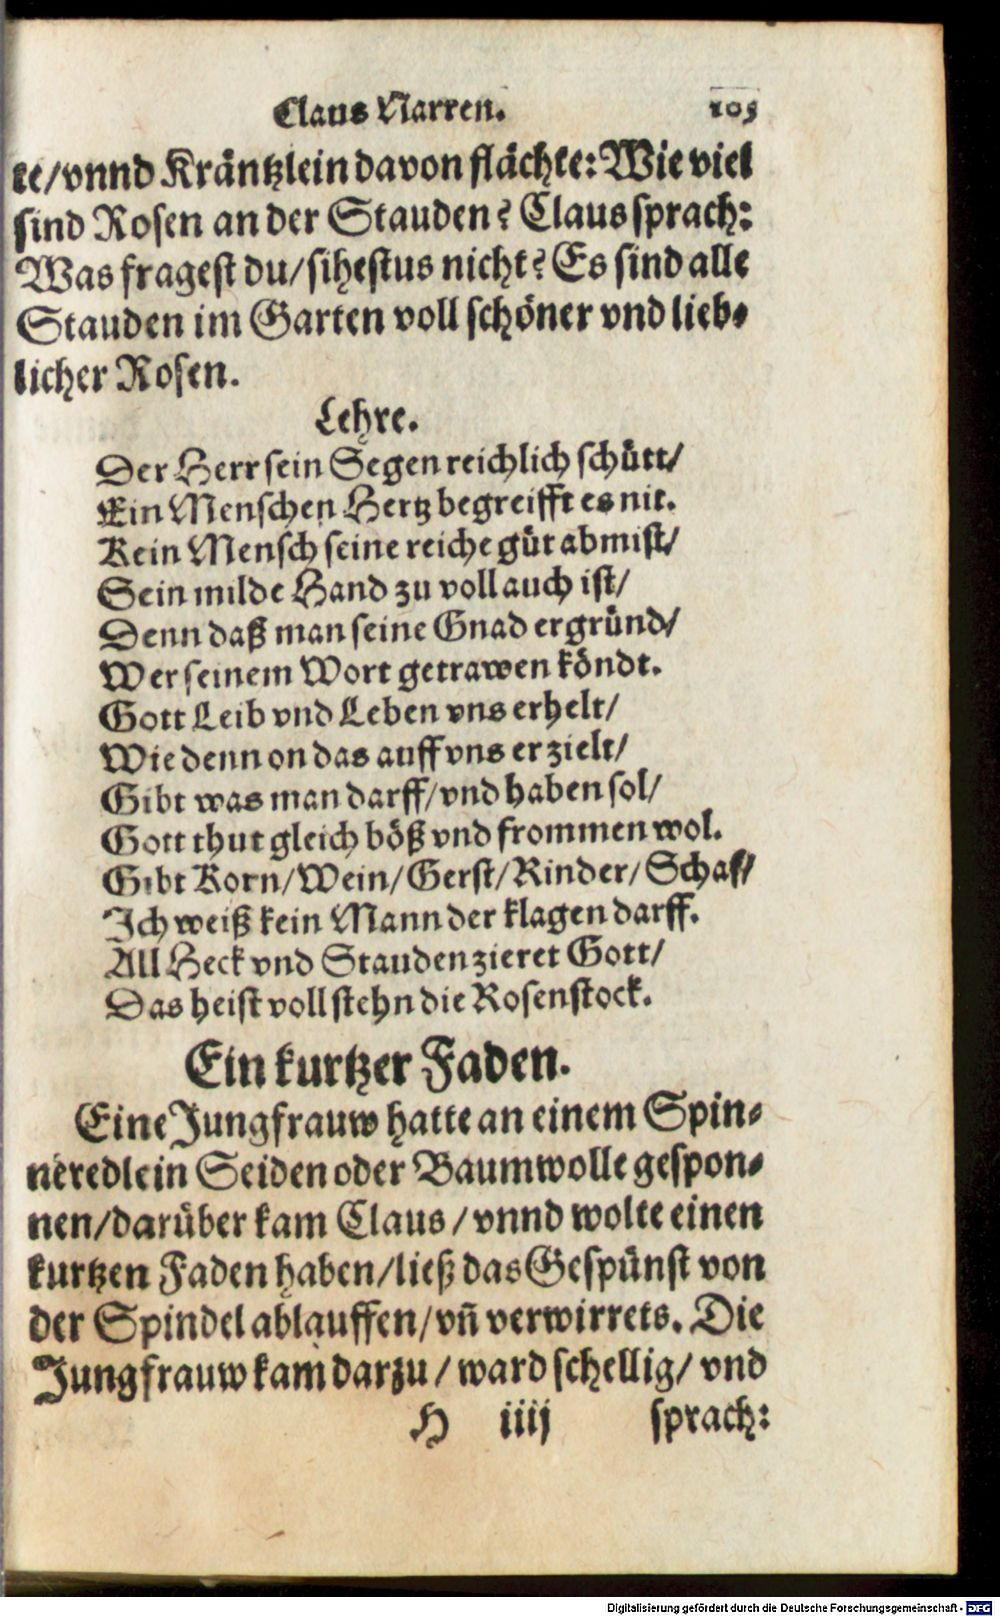 Claus Narren. 105
te/vnnd Kräntzlein davon flächte: Wie viel
sind Rosen an der Stauden? Claus sprach:
Was fragest du/sihestus nicht? Es sind alle
Stauden im Garten voll schöner vnd lieb-
licher Rosen.
Lehre.
Der Herr sein Segen reichlich schütt/
Ein Menschen Hertz begreifft es nit.
Kein Mensch seine reiche güt abmist/
Sein milde Hand zu voll auch ist/
Denn daß man seine Gnad ergründ/
Wer seinem Wort getrawen köndt.
Gott Leib vnd Leben vns erhelt/
Wie denn on das auff vns erzielt/
Gibt was man darff/vnd haben sol/
Gott thut gleich böß vnd frommen wol.
Gibt Korn/Wein/Gerst/Rinder/Schaf/
Ich weiß kein Mann der klagen darff.
All Heck vnd Stauden zieret Gott/
Das heist voll stehn die Rosenstock.
Ein kurtzer Faden.
Eine Jungfrauw hatte an einem Spin-
neredlein Seiden oder Baumwolle gespon-
nen/darüber kam Claus/vnnd wolte einen
kurtzen Faden haben/ließ das Gespünst von
der Spindel ablauffen/vñ verwirrets. Die
Jungfrauw kam darzu/ward schellig/vnd
H iiij sprach:
Digitalisierung gefördert durch die Deutsche Forschungsgemeinschaft - DFG